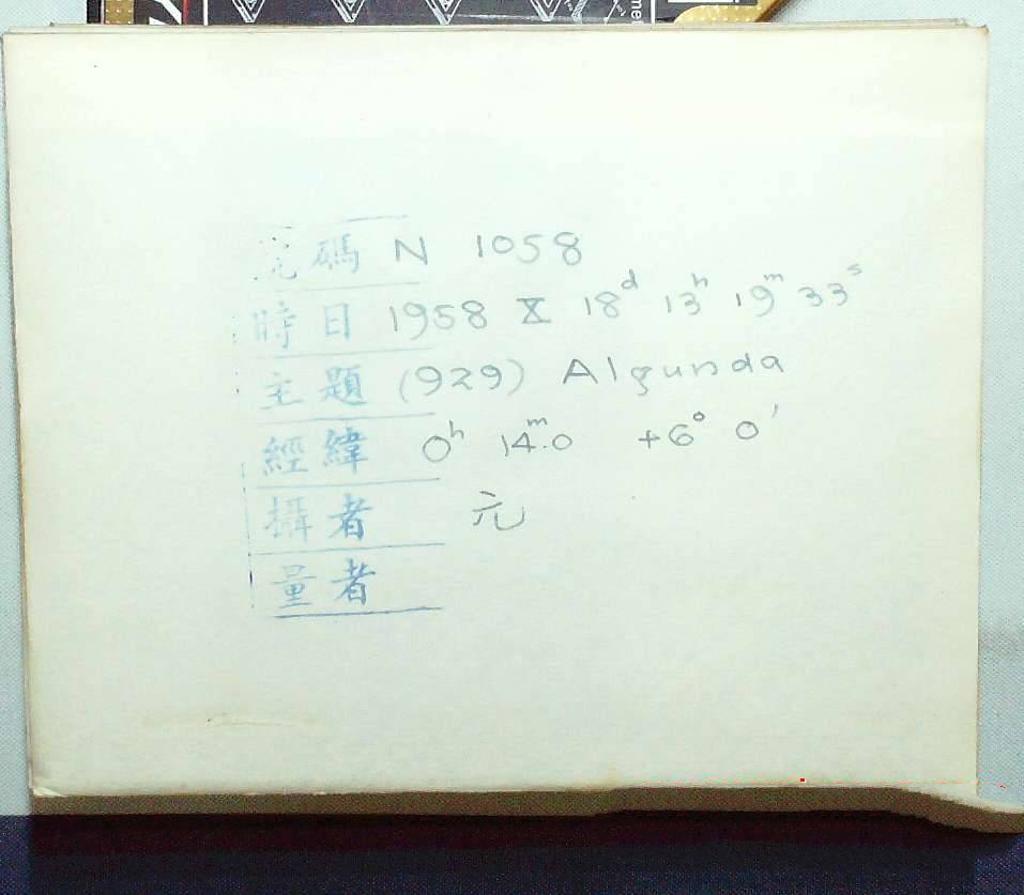 號碼 N 1058
時日 1958 X 18ᵈ 13ʰ 19ᵐ 33ˢ
主題 (929) Algunda
經緯 0ʰ 14ᵐ.0 +6° 0'
攝者 元
量者